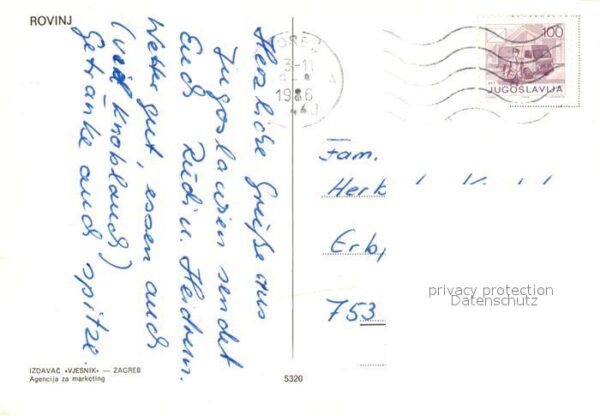 ROVINJ
Herzliche Grüße aus
Jugoslawien sendet
Euch Rudi u. Heidrun.
Wetter gut, essen auch
(viel Knoblauch)
Getränke auch spitze.
1986
100
JUGOSLAVIJA
Fam.
Herb
Erb
753
privacy protection
Datenschutz
IZDAVAČ «VJESNIK» — ZAGREB
Agencija za marketing
5320